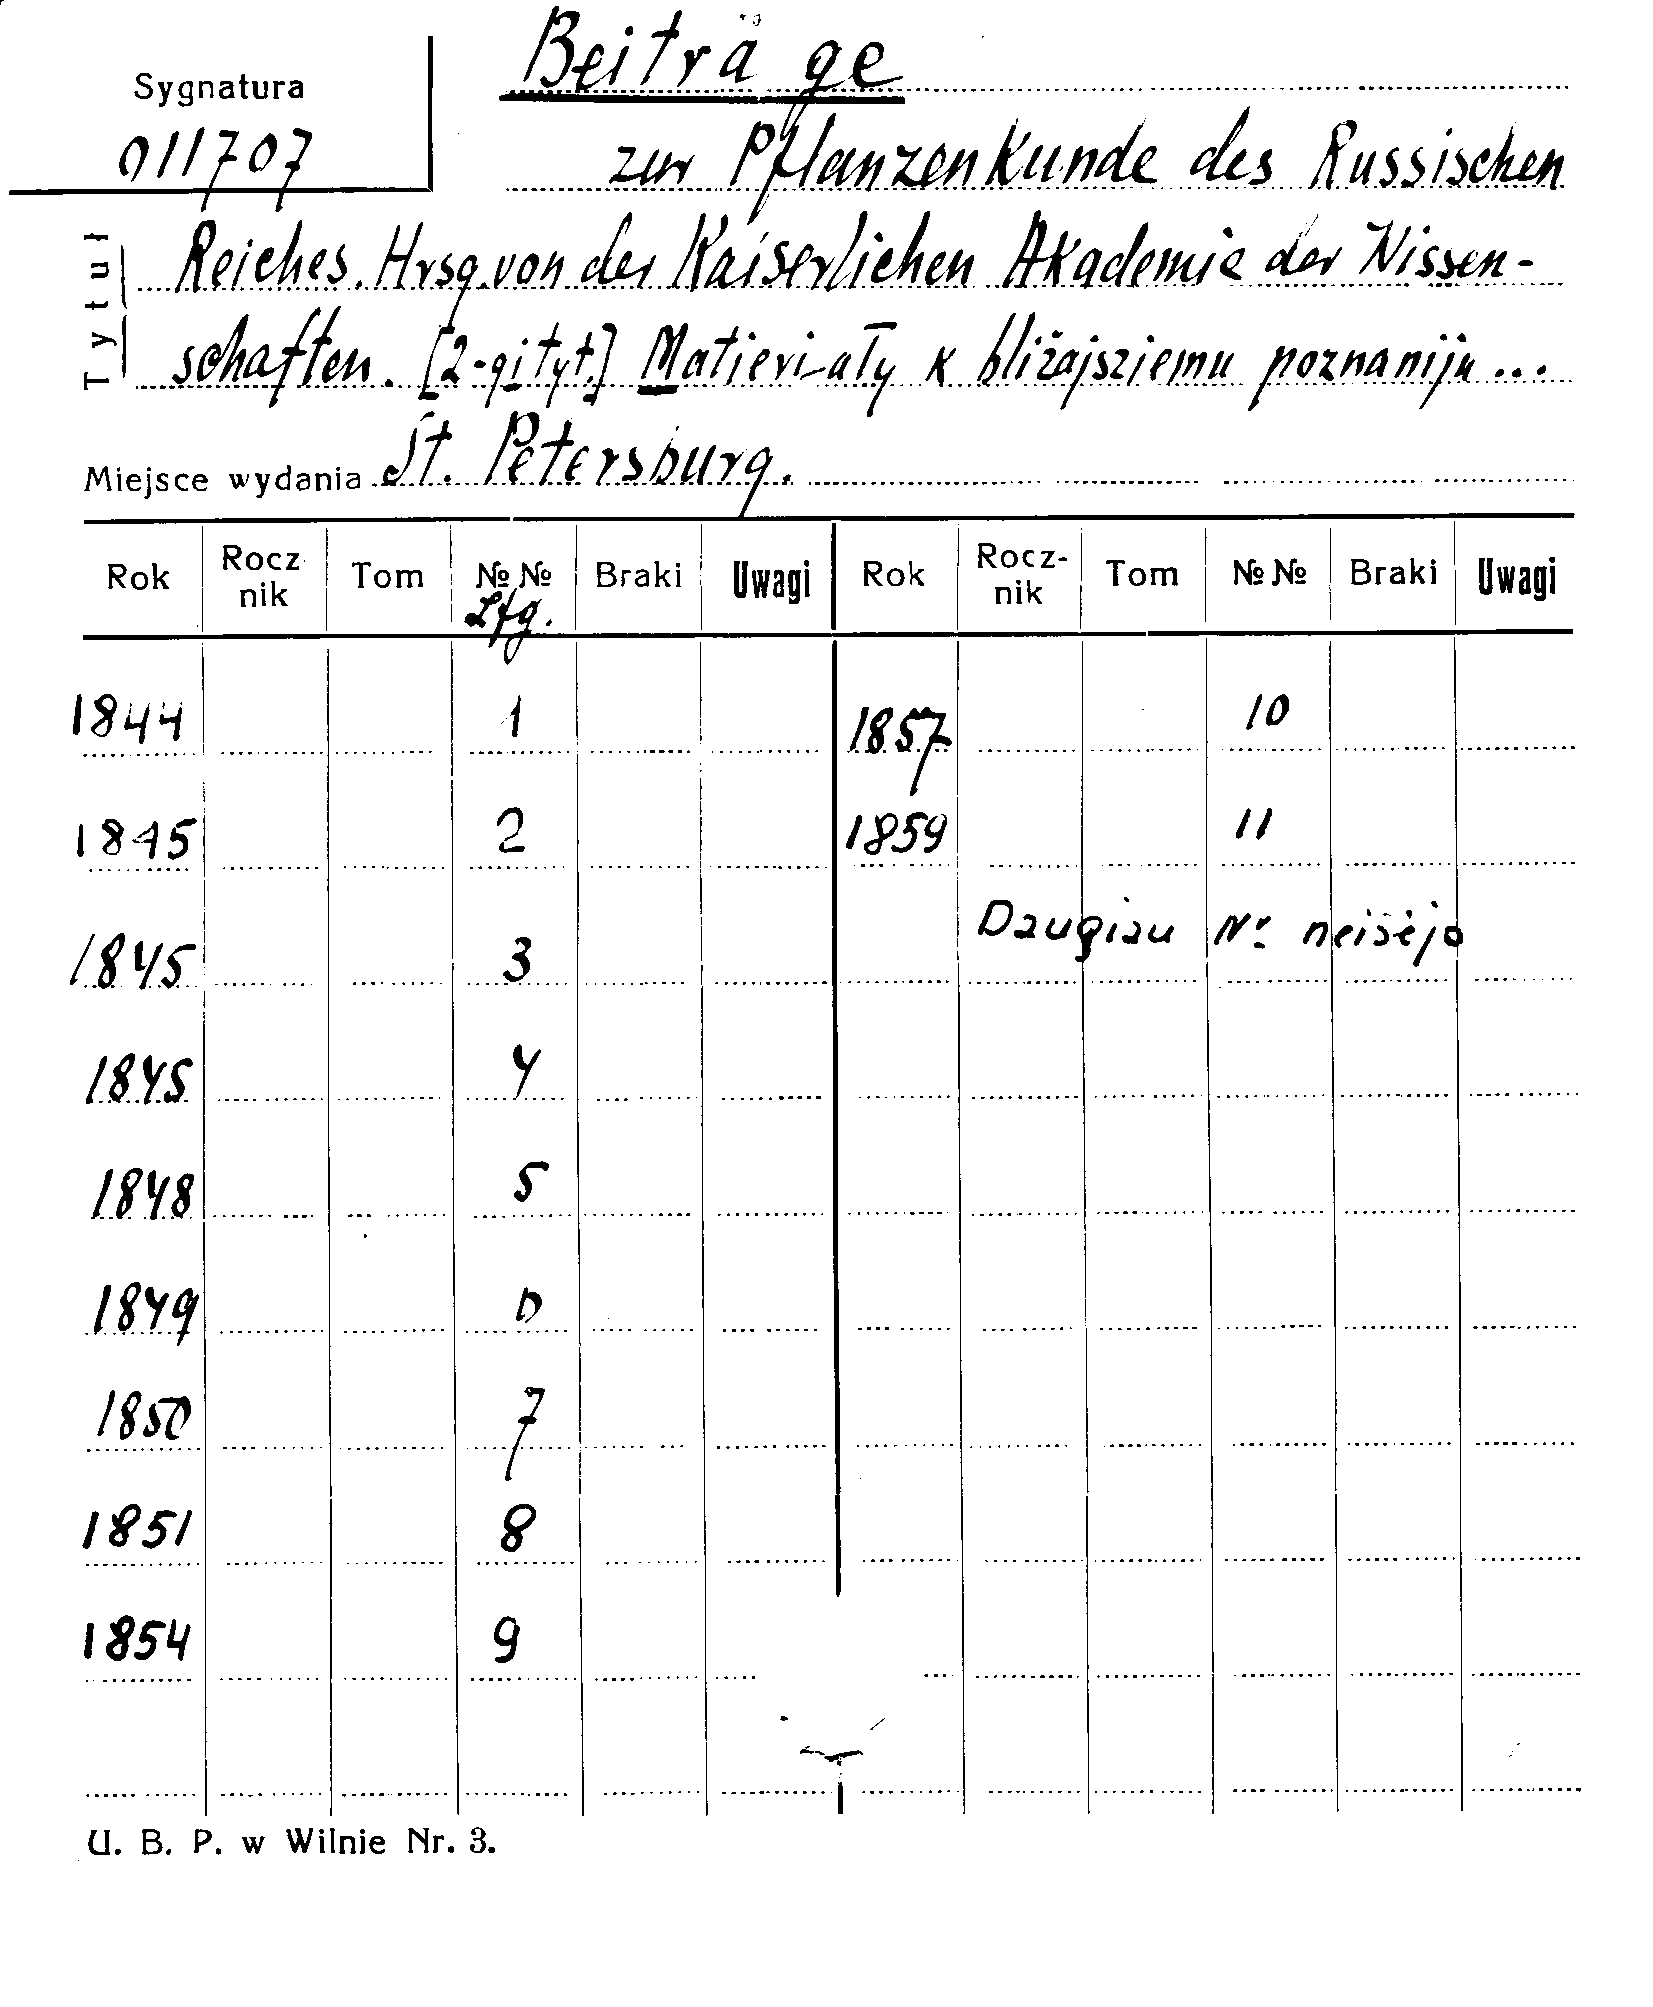 Sygnatura
011707
Beiträge
zur Pflanzenkunde des Russischen
Tytuł
Reiches. Hrsg. von der Kaiserlichen Akademie der Wissen-
schaften. [2-gi tyt.] Matieriały k bliżajsziemu poznaniju...
Miejsce wydania St. Petersburg.
Rok Rocznik Tom №№ Braki Uwagi Rok Rocz-nik Tom №№ Braki Uwagi
Lfg.
1844 1 1857 10
1845 2 1859 11
Daugiau Nr neišėjo
1845 3
1845 4
1848 5
1849
1850 7
1851 8
1854 9
U. B. P. w Wilnie Nr. 3.